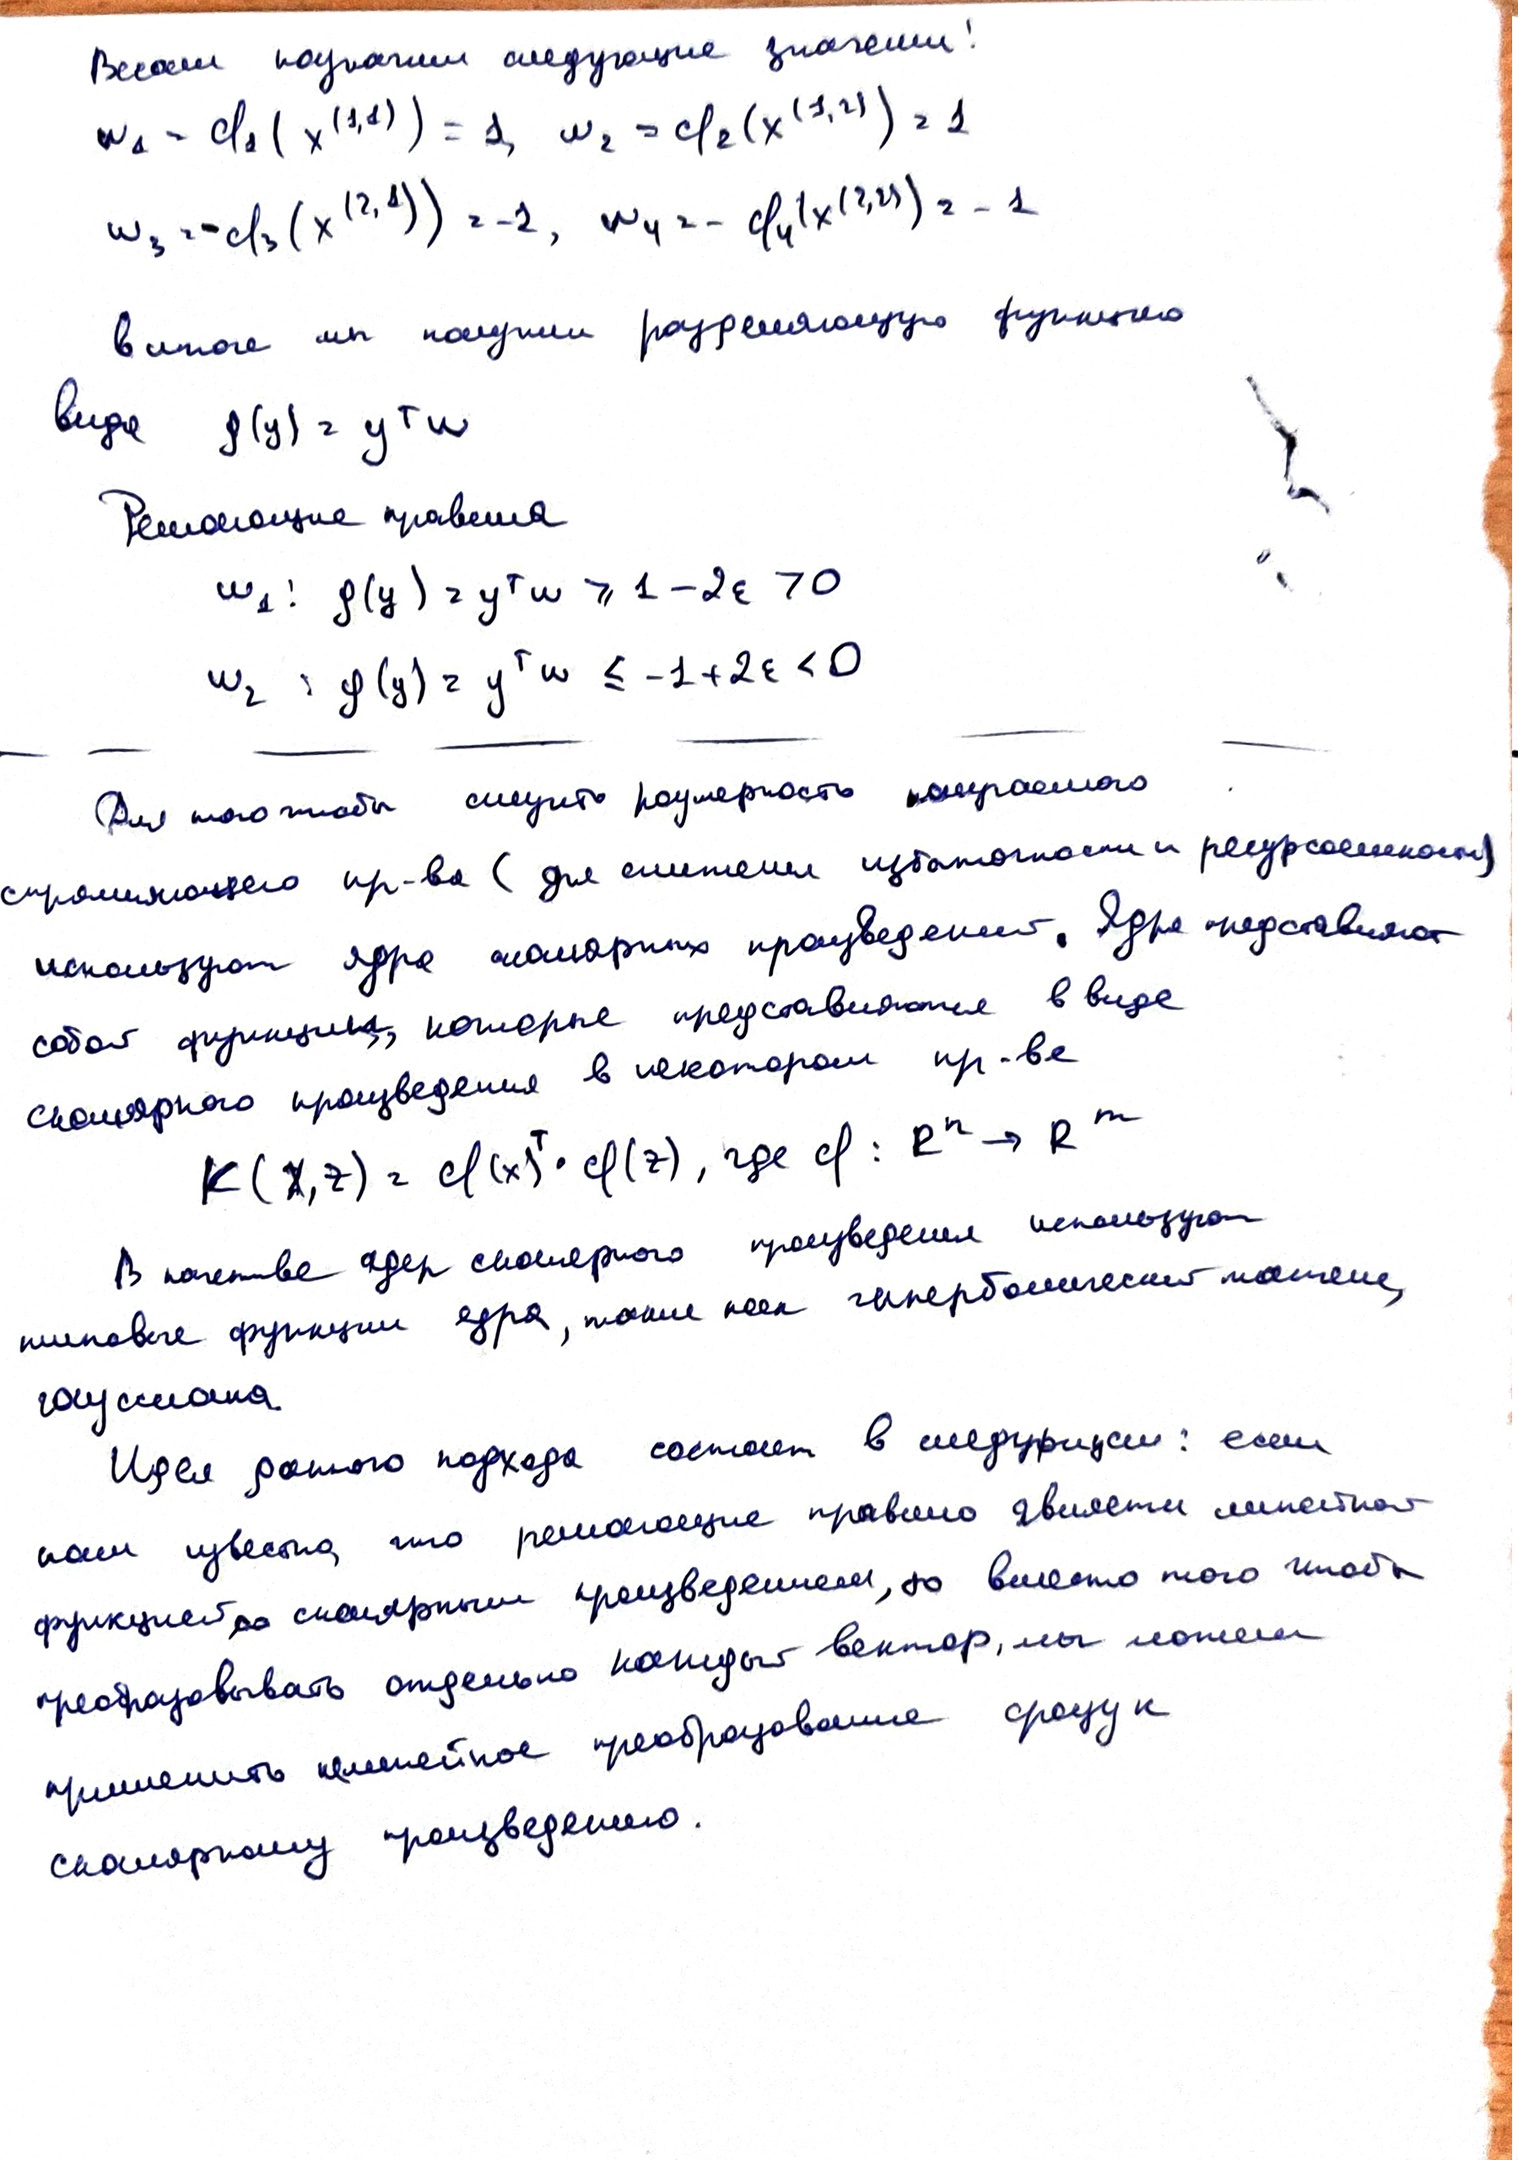 Весам назначим следующие значения:
w₁ = φ₁(x^(1,1)) = 1, w₂ = φ₂(x^(1,2)) = 1
w₃ = -φ₃(x^(2,1)) = -1, w₄ = -φ₄(x^(2,2)) = -1
В итоге мы получим разделяющую функцию
вида g(y) = yᵀw
Решающие правила
w₁: g(y) = yᵀw ⩾ 1 - 2ε > 0
w₂: g(y) = yᵀw ≤ -1 + 2ε < 0
Для того чтобы снизить размерность
спрямляющего пр-ва (для снижения избыточности и ресурсоемкости)
используют ядра скалярных произведений. Ядра представляют
собой функции, которые представляются в виде
скалярного произведения в некотором пр-ве
K(x,z) = φ(x)ᵀ·φ(z), где φ: Rⁿ → Rᵐ
В качестве ядер скалярного произведения используют
типовые функции ядра, такие как гиперболический тангенс,
гауссиана.
Идея данного подхода состоит в следующем: если
нам известно, что решающие правило является линейной
функцией со скалярным произведением, то вместо того чтобы
преобразовывать отдельно каждый вектор, мы можем
применить нелинейное преобразование сразу к
скалярному произведению.